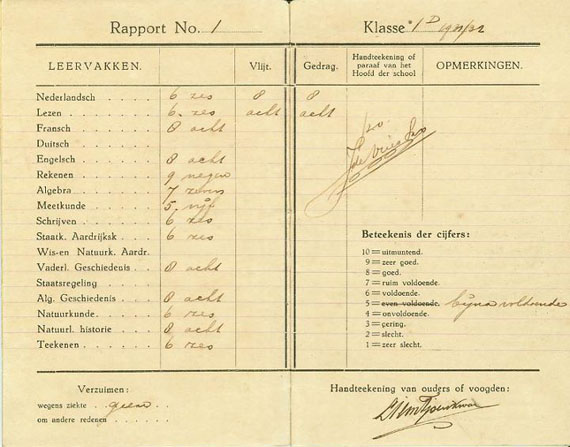 Rapport No. 1 Klasse 1D 1921/22
LEERVAKKEN. Vlijt. Gedrag. Handteekening of paraaf van het Hoofd der school OPMERKINGEN.
Nederlandsch 6 zes 8 8
Lezen 6. zes acht acht
Fransch 8 acht
Duitsch
Engelsch 8 acht
Rekenen 9 negen
Algebra 7 zeven
Meetkunde 5. vijf
Schrijven 6 zes
Staatk. Aardrijksk. 6 zes
Wis-en Natuurk. Aardr.
Vaderl. Geschiedenis 8 acht
Staatsregeling
Alg. Geschiedenis 8 acht
Natuurkunde 6 zes
Natuurl. historie 8 acht
Teekenen 6 zes
Beteekenis der cijfers:
10 = uitmuntend.
9 = zeer goed.
8 = goed.
7 = ruim voldoende.
6 = voldoende.
5 = even voldoende. bijna voldoende
4 = onvoldoende.
3 = gering.
2 = slecht.
1 = zeer slecht.
Verzuimen:
wegens ziekte geen
om andere redenen
Handteekening van ouders of voogden: